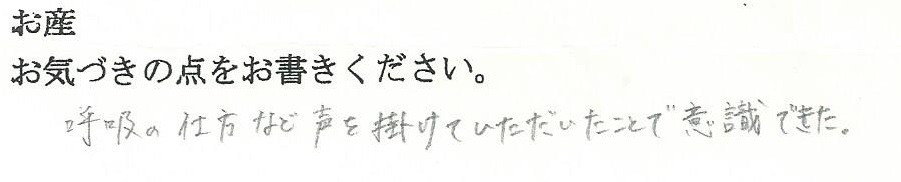 お産
お気づきの点をお書きください。
呼吸の仕方など声を掛けていただいたことで意識できた。